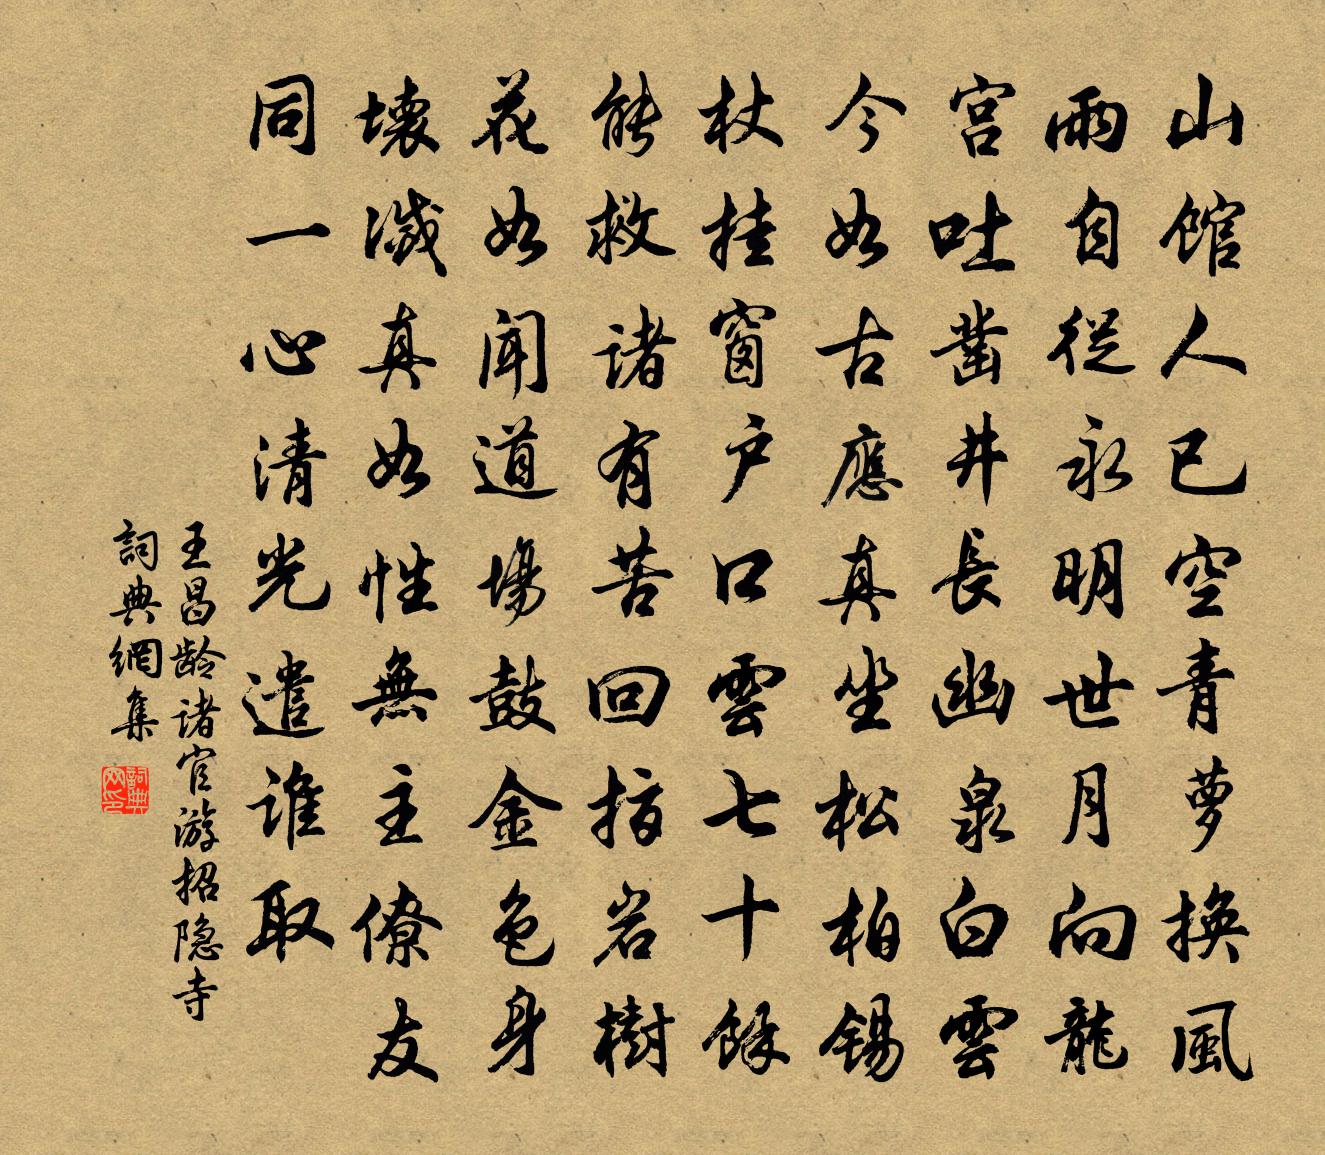 山館人已空青萝換風
雨自從永明世月向龍
宮吐凿井長幽泉白雲
今如古應真坐松柏錫
杖挂窗户口雲七十餘
能救諸有苦回指岩樹
花如闻道場鼓金色身
壞滅真如性無主僚友
同一心清光遣誰取
王昌龄诸官游招隐寺
詞典網集
詞典网印